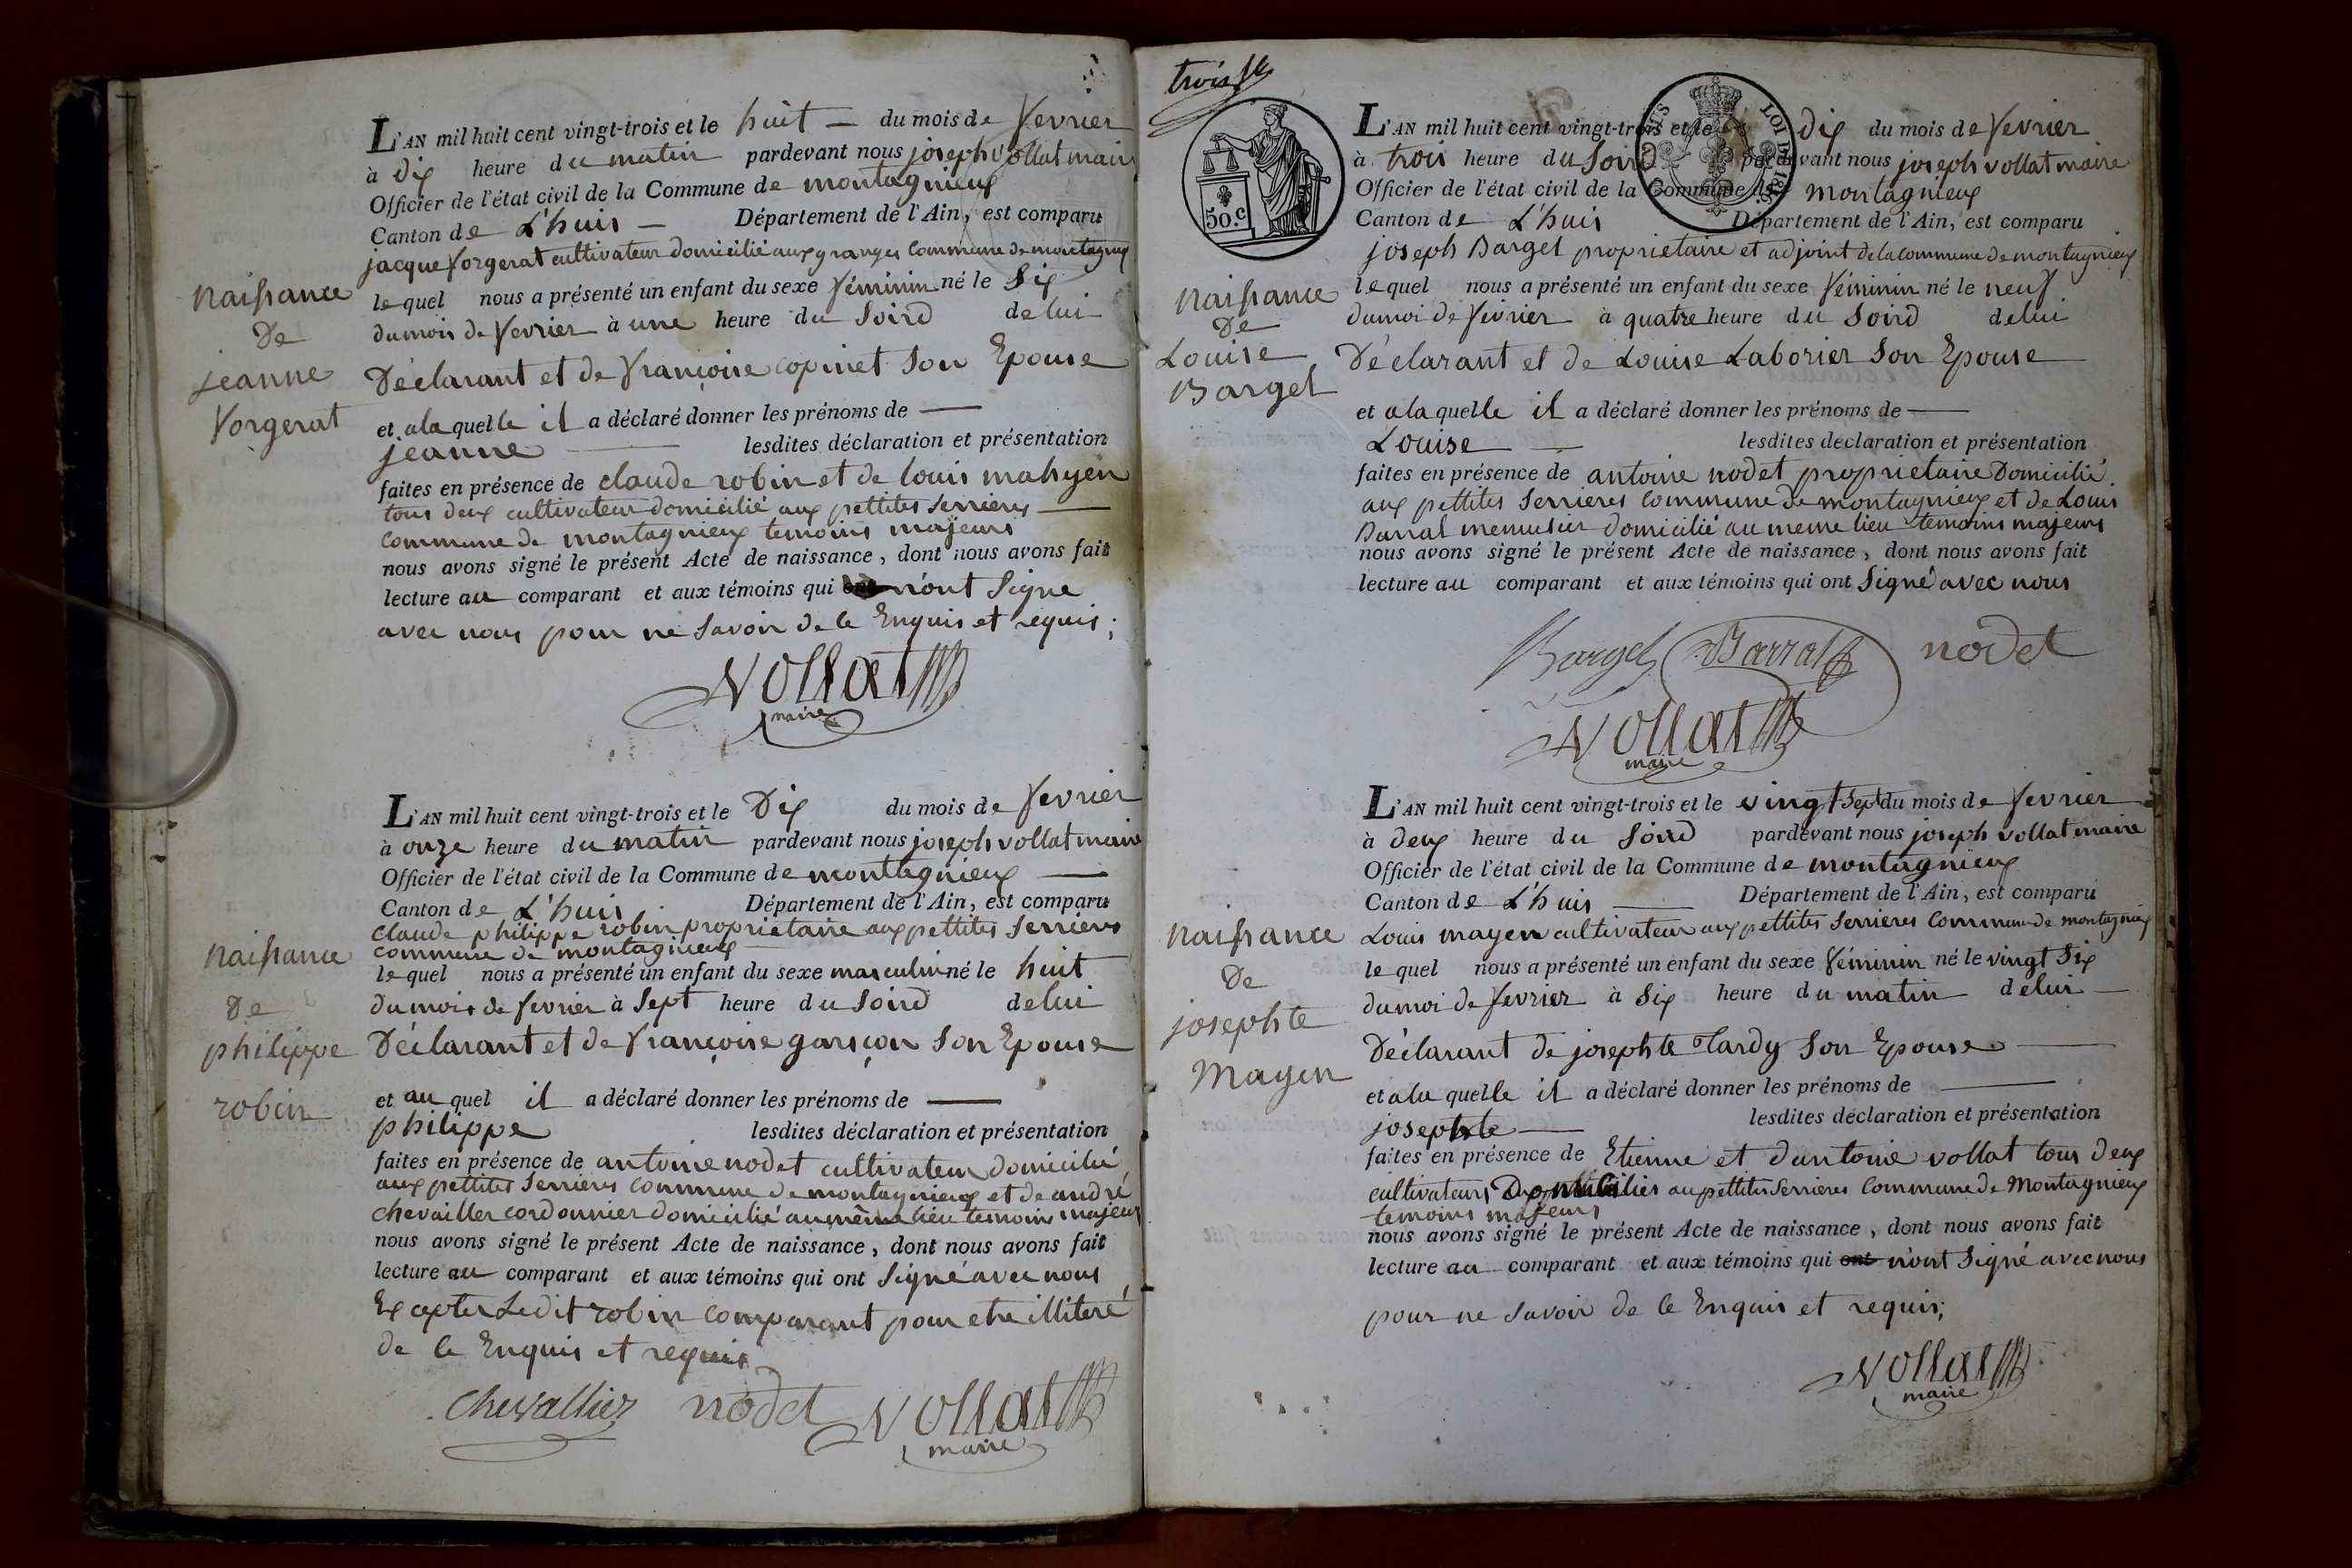 L'AN mil huit cent vingt-trois et le huit — du mois de fevrier
à dix heure du matin pardevant nous joseph vollat maire
Officier de l'état civil de la Commune de montagnieux
Canton de L'huis — Département de l'Ain, est comparu
jacque forgerat cultivateur domicilié aux granges Commune de montagnieux
lequel nous a présenté un enfant du sexe féminin né le Six
du mois de fevrier à une heure du Soird de lui
Déclarant et de françoise copinet Son Epouse
et a la quelle il a déclaré donner les prénoms de —
jeanne — lesdites déclaration et présentation
faites en présence de claude robin et de louis mahyen
tous deux cultivateur domicilié aux pettites Serrieres —
commune de montagnieux temoins majeurs
nous avons signé le présent Acte de naissance, dont nous avons fait
lecture au comparant et aux témoins qui ont n'ont Signe
avec nous pour ne Savoir de ce Enquis et requis;
Vollat
maire
Naissance
De
jeanne
forgerat
L'AN mil huit cent vingt-trois et le Dix du mois de fevrier
à onze heure du matin pardevant nous joseph vollat maire
Officier de l'état civil de la Commune de montagnieux —
Canton de L'huis Département de l'Ain, est comparu
Claude philippe robin propriétaire aux pettites Serrieres
commune de montagnieux
lequel nous a présenté un enfant du sexe masculin né le huit
du mois de fevrier à Sept heure du Soird de lui
Déclarant et de françoise garsçon Son Epouse
et au quel il a déclaré donner les prénoms de —
philippe lesdites déclaration et présentation
faites en présence de antoine nodet cultivateur domicilié
aux pettites Serrieres commune de montagnieux et de andré
chevailler cordonnier domicilié au même lieu temoins majeurs
nous avons signé le présent Acte de naissance, dont nous avons fait
lecture au comparant et aux témoins qui ont Signé avec nous
Excepter Ledit robin comparant pour etre illiteré
de ce Enquis et requis
Chevallier nodet Vollat
maire
Naissance
De
philippe
robin
trois
50.c
LOI DE 18
L'AN mil huit cent vingt-trois et le dix du mois de fevrier
à trois heure du Soird pardevant nous joseph vollat maire
Officier de l'état civil de la Commune de montagnieux
Canton de L'huis Département de l'Ain, est comparu
joseph Barget proprietaire et adjoint de la commune de montagnieux
lequel nous a présenté un enfant du sexe féminin né le neuf
du moi de fevrier à quatre heure du Soird de lui
Déclarant et de Louise Laborier Son Epouse
et a la quelle il a déclaré donner les prénoms de —
Louise — lesdites déclaration et présentation
faites en présence de antoine nodet proprietaire Domicilié
aux pettites Serrieres Commune de montagnieux et de Louis
Barral menuisier domicilié au meme lieu temoins majeurs
nous avons signé le présent Acte de naissance, dont nous avons fait
lecture au comparant et aux témoins qui ont Signé avec nous
Barget Barral nodet
Vollat
maire
Naissance
De
Louise
Barget
L'AN mil huit cent vingt-trois et le vingt Sept du mois de fevrier
à deux heure du Soird pardevant nous joseph vollat maire
Officier de l'état civil de la Commune de montagnieux
Canton de L'huis — Département de l'Ain, est comparu
Louis mayen cultivateur aux pettites Serrieres Commune de montagnieux
lequel nous a présenté un enfant du sexe féminin né le vingt Six
du moi de fevrier à Six heure du matin de lui —
Déclarant de josephte Tardy Son Epouse —
et a la quelle il a déclaré donner les prénoms de —
josephte — lesdites déclaration et présentation
faites en présence de Etienne et d'antoine vollat tous deux
cultivateurs Domiciliés aux pettites Serrieres Commune de Montagnieux
temoins majeurs
nous avons signé le présent Acte de naissance, dont nous avons fait
lecture au comparant et aux témoins qui ont n'ont Signé avec nous
pour ne Savoir de ce Enquis et requis;
Vollat
maire
Naissance
De
josephte
Mayen